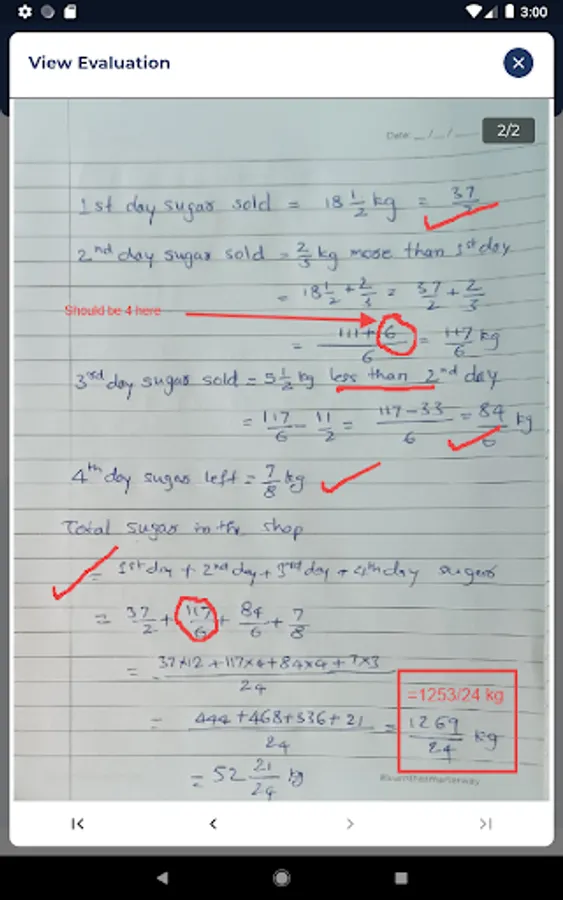 3:00
View Evaluation
Date: __/__/__
2/2
1st day sugar sold = 18 1/2 kg = 37/2
2nd day sugar sold = 2/3 kg more than 1st day
= 18 1/2 + 2/3 = 37/2 + 2/3
Should be 4 here
= 111+6/6 = 117/6 kg
3rd day sugar sold = 5 1/2 kg less than 2nd day
= 117/6 - 11/2 = 117-33/6 = 84/6 kg
4th day sugar left = 7/8 kg
Total sugar in the shop
= 1st day + 2nd day + 3rd day + 4th day sugar
= 37/2 + 117/6 + 84/6 + 7/8
= 37×12 + 117×4 + 84×4 + 7×3/24
=1253/24 kg
= 444+468+336+21/24 = 1269/24 kg
= 52 21/24 kg